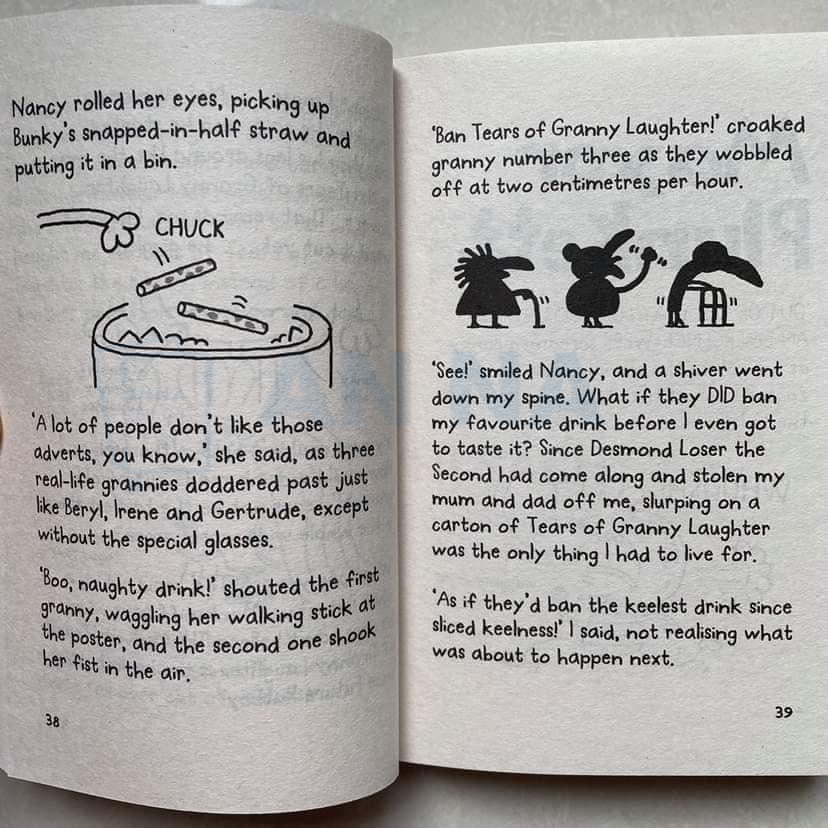 Nancy rolled her eyes, picking up
Bunky's snapped-in-half straw and
putting it in a bin.
CHUCK
'A lot of people don't like those
adverts, you know,' she said, as three
real-life grannies doddered past just
like Beryl, Irene and Gertrude, except
without the special glasses.
'Boo, naughty drink!' shouted the first
granny, waggling her walking stick at
the poster, and the second one shook
her fist in the air.
38
'Ban Tears of Granny Laughter!' croaked
granny number three as they wobbled
off at two centimetres per hour.
'See!' smiled Nancy, and a shiver went
down my spine. What if they DID ban
my favourite drink before I even got
to taste it? Since Desmond Loser the
Second had come along and stolen my
mum and dad off me, slurping on a
carton of Tears of Granny Laughter
was the only thing I had to live for.
'As if they'd ban the keelest drink since
sliced keelness!' I said, not realising what
was about to happen next.
39